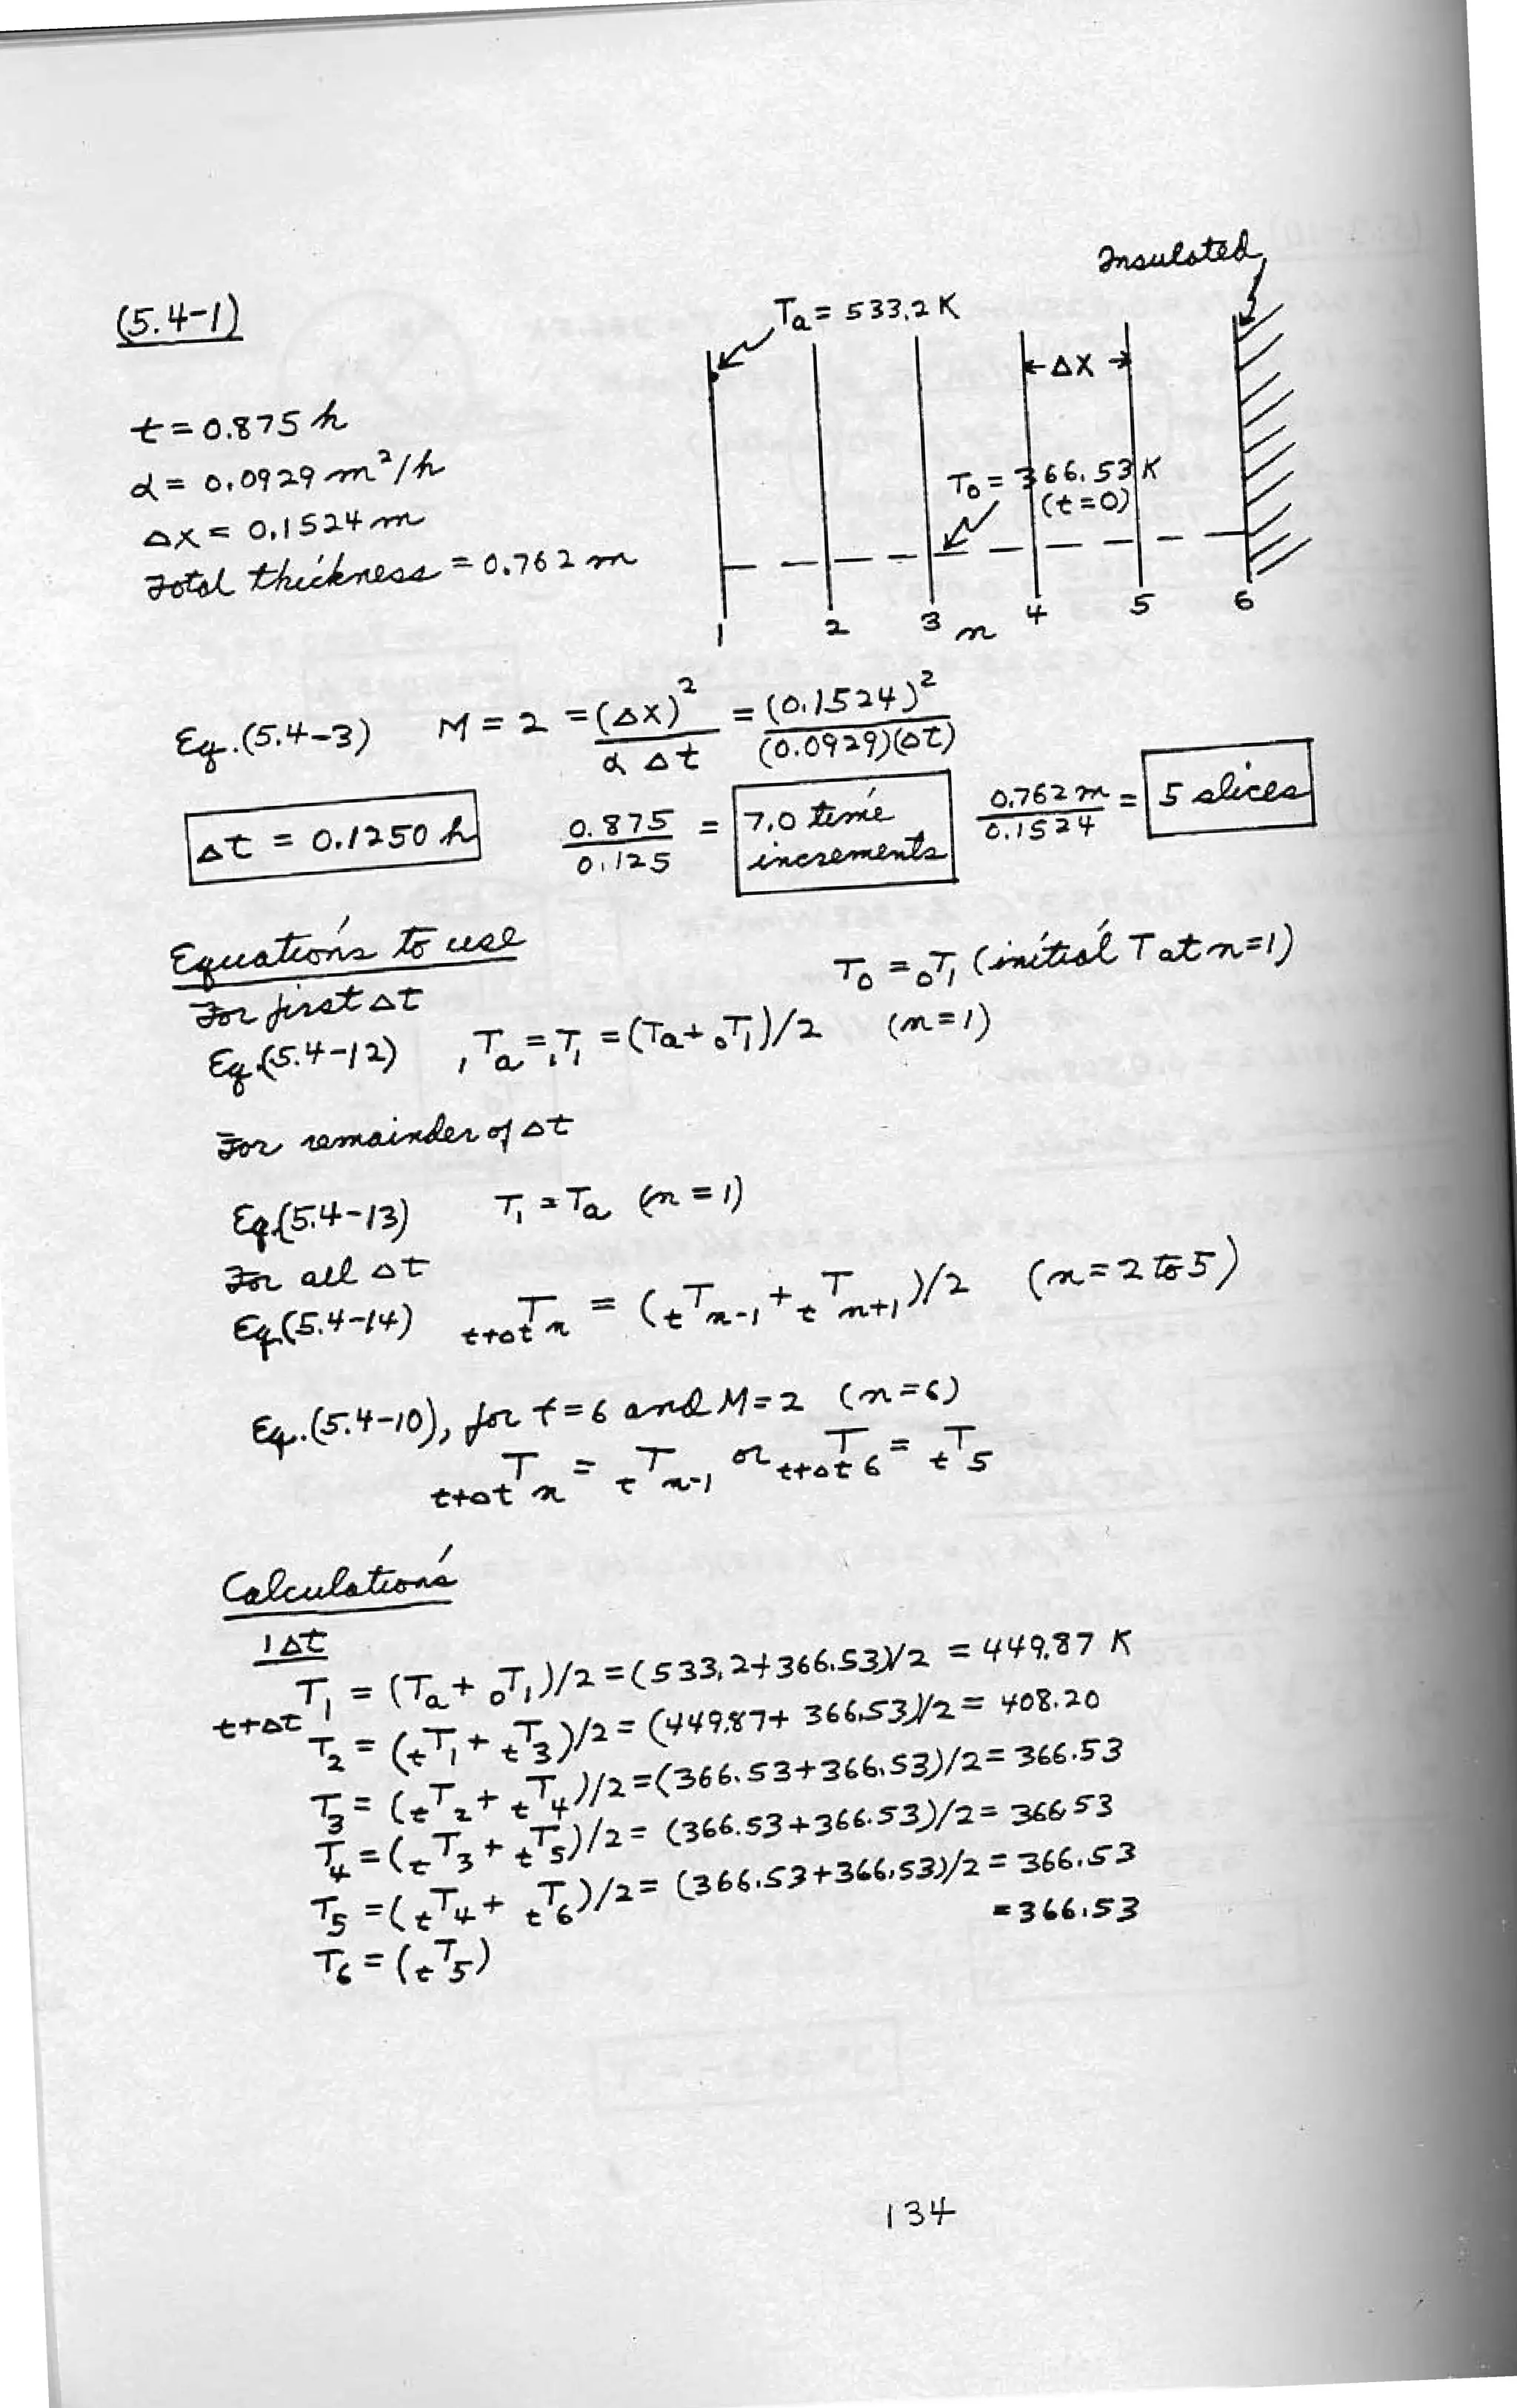 Insulated
(5.4-1)
Ta = 533.2 K
ΔX
t = 0.875 h
α = 0.0929 m²/h
ΔX = 0.1524 m
Total thickness = 0.762 m
T₀ = 366.53 K
(t=0)
1 2 3 n 4 5 6
Eq.(5.4-3) M = 2 = (ΔX)²/(α Δt) = (0.1524)²/((0.0929)(Δt))
Δt = 0.1250 h 0.875/0.125 = 7.0 time increments 0.762 m/0.1524 = 5 slices
Equations to use
T₀ = ₀T₁ (initial T at n=1)
For first Δt
Eq.(5.4-12) ₁Ta = ₁T₁ = (Ta + ₀T₁)/2 (n=1)
For remainder of Δt
Eq.(5.4-13) T₁ = Ta (n=1)
For all Δt
Eq.(5.4-14) t+ΔtTn = (tTn-1 + tTn+1)/2 (n=2 to 5)
Eq.(5.4-10), for t=6 and M=2 (n=6)
t+ΔtTn = tTn-1 or t+ΔtT6 = tT5
Calculations
1Δt
t+ΔtT₁ = (Ta + ₀T₁)/2 = (533.2+366.53)/2 = 449.87 K
T₂ = (tT₁ + tT₃)/2 = (449.87+366.53)/2 = 408.20
T₃ = (tT₂ + tT₄)/2 = (366.53+366.53)/2 = 366.53
T₄ = (tT₃ + tT₅)/2 = (366.53+366.53)/2 = 366.53
T₅ = (tT₄ + tT₆)/2 = (366.53+366.53)/2 = 366.53
T₆ = (tT₅) = 366.53
134